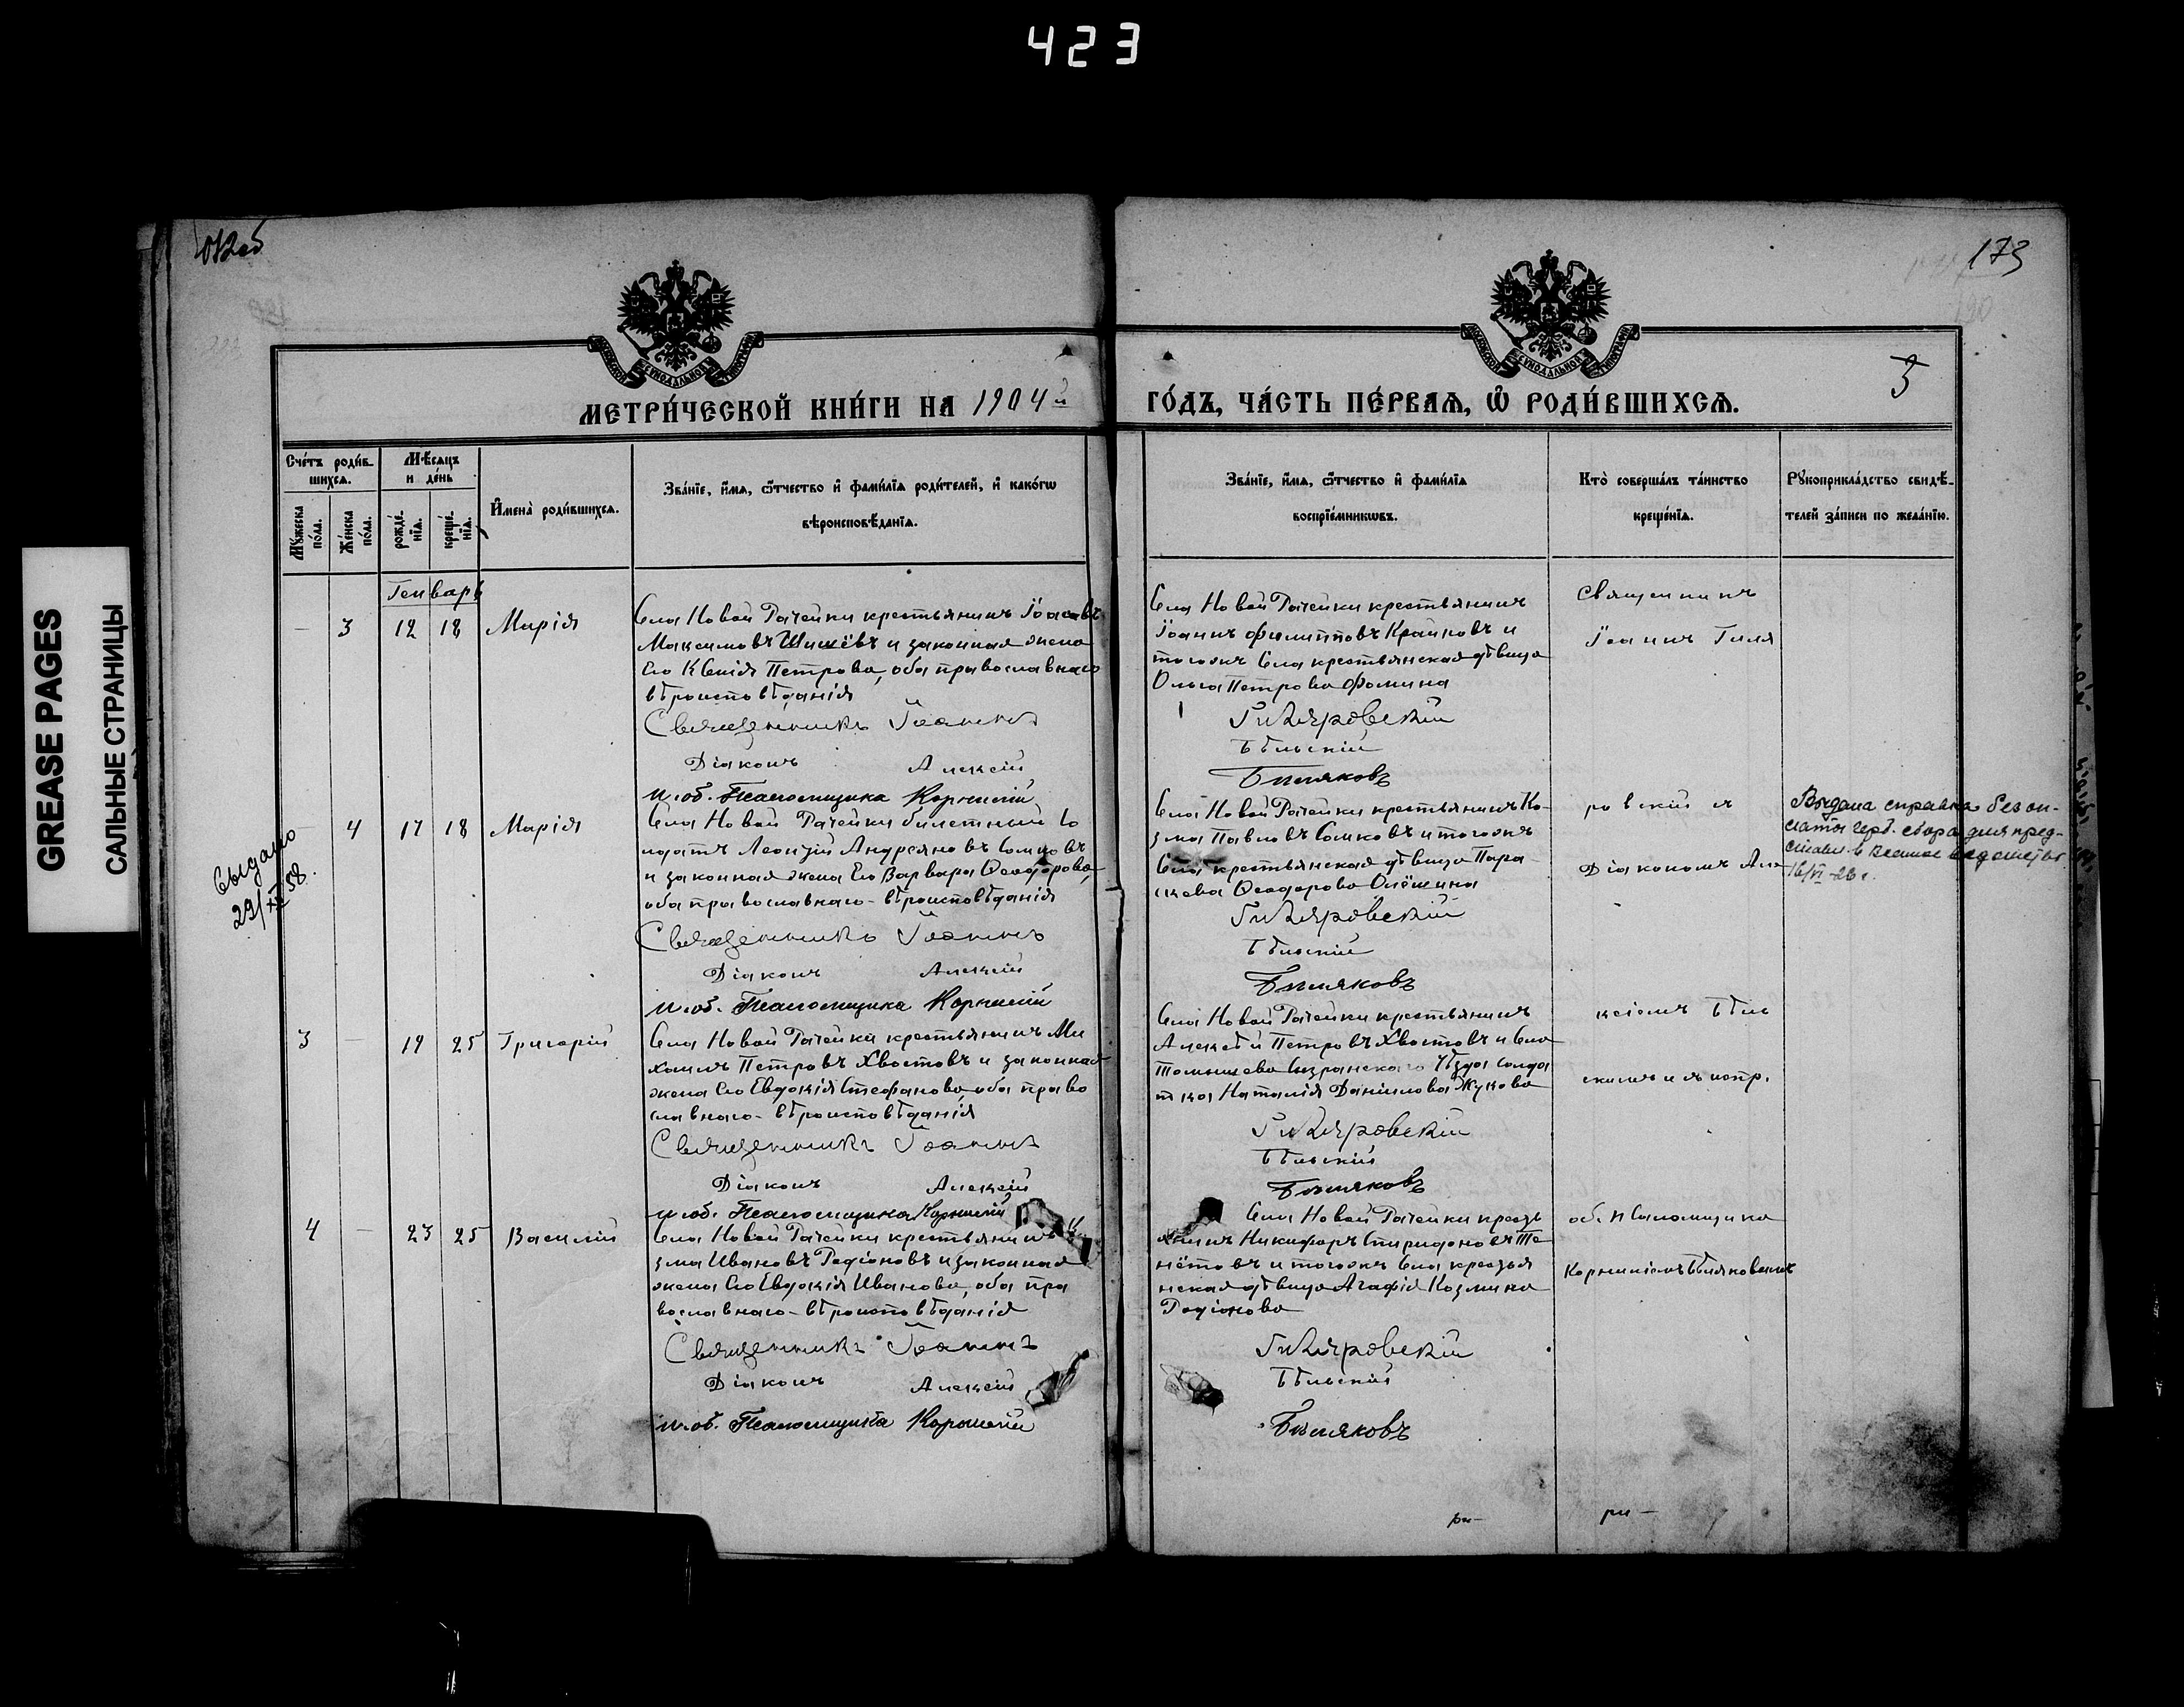 423
GREASE PAGES
САЛЬНЫЕ СТРАНИЦЫ
173
3
МЕТРИ́ЧЕСКОЙ КНИ́ГИ НА 1904й
ГО́ДЪ, ЧА́СТЬ ПЕ́РВАѦ, Ѽ РОДИ́ВШИХСѦ.
Сче́тъ роди́в-
шихсѧ.
Мꙋ́жеска
по́ла.
Же́нска
по́ла.
Мѣ́сѧцъ
и де́нь
рожде́-
нїѧ.
креще́-
нїѧ.
И҆мена̀ роди́вшихсѧ.
Зва́нїе, и҆́мѧ, ѻ҆́тчество и҆ фами́лїѧ роди́телей, и҆ како́гѡ
вѣроисповѣ́данїѧ.
Зва́нїе, и҆́мѧ, ѻ҆́тчество и҆ фами́лїѧ
воспрїе́мникѡвъ.
Кто̀ соверша́лъ та́инство
креще́нїѧ.
Рꙋкоприкла́дство свидѣ́-
телей за́писи по жела́нїю.
Генварь
— 3 12 18 Марія
Села Новой Рачейки крестьянинъ Іоасафъ
Максимовъ Шишёвъ и законная жена
Его Ксенія Петрова, оба православнаго
вѣроисповѣданія
Священникъ Іоаннъ
Діаконъ Алексій
и. об. Псаломщика Корнилій
Села Новой Рачейки крестьянинъ
Іоаннъ Филипповъ Крайновъ и
тогожъ Села крестьянская дѣвица
Ольга Петрова Фомина
Гиляровскій
Бѣльскій
Бѣляковъ
Священникъ
Іоаннъ Гиля
Выдано
29/XII 58.
— 4 17 18 Марія
Села Новой Рачейки билетный Со
лдатъ Леонтій Андреяновъ Сомковъ
и законная жена Его Варвара Ѳеодорова,
оба православнаго-вѣроисповѣданія
Священникъ Іоаннъ
Діаконъ Алексій
и. об. Псаломщика Корнилій
Села Новой Рачейки крестьянинъ Ко-
зма Павловъ Сомковъ и тогожъ
Села крестьянская дѣвица Пара-
скева Ѳеодорова Олёшина
Гиляровскій
Бѣльскій
Бѣляковъ
ровскій съ
Діакономъ Але
Выдана справка без оп-
латы герб. сбора для пред-
ставл. в Военное ведомство
16/VI-26 г.
3 — 19 25 Григорій
Села Новой Рачейки крестьянинъ Ми
хаилъ Петровъ Хвостовъ и законная
жена Его Евдокія Стефанова, оба право
славнаго-вѣроисповѣданія
Священникъ Іоаннъ
Діаконъ Алексій
и. об. Псаломщика Корнилій
Села Новой Рачейки крестьянинъ
Алексѣй Петровъ Хвостовъ и Села
Томышева Сызранскаго Уѣзда солда
тка Наталія Даніилова Жукова
Гиляровскій
Бѣльскій
Бѣляковъ
ксіемъ Бѣль
скимъ и испр.
4 — 23 25 Василій
Села Новой Рачейки крестьянинъ
зма Ивановъ Родіоновъ и законная
жена Его Евдокія Иванова, оба пра
вославнаго-вѣроисповѣданія
Священникъ Іоаннъ
Діаконъ Алексій
и. об. Псаломщика Корнилій
Села Новой Рачейки кресть
янинъ Никифоръ Спиридоновъ Те
нётовъ и тогожъ Села крестья
нская дѣвица Агафія Козмина
Родіонова
Гиляровскій
Бѣльскій
Бѣляковъ
об. Псаломщика
Корниліемъ Бѣляковымъ
ри- ри-